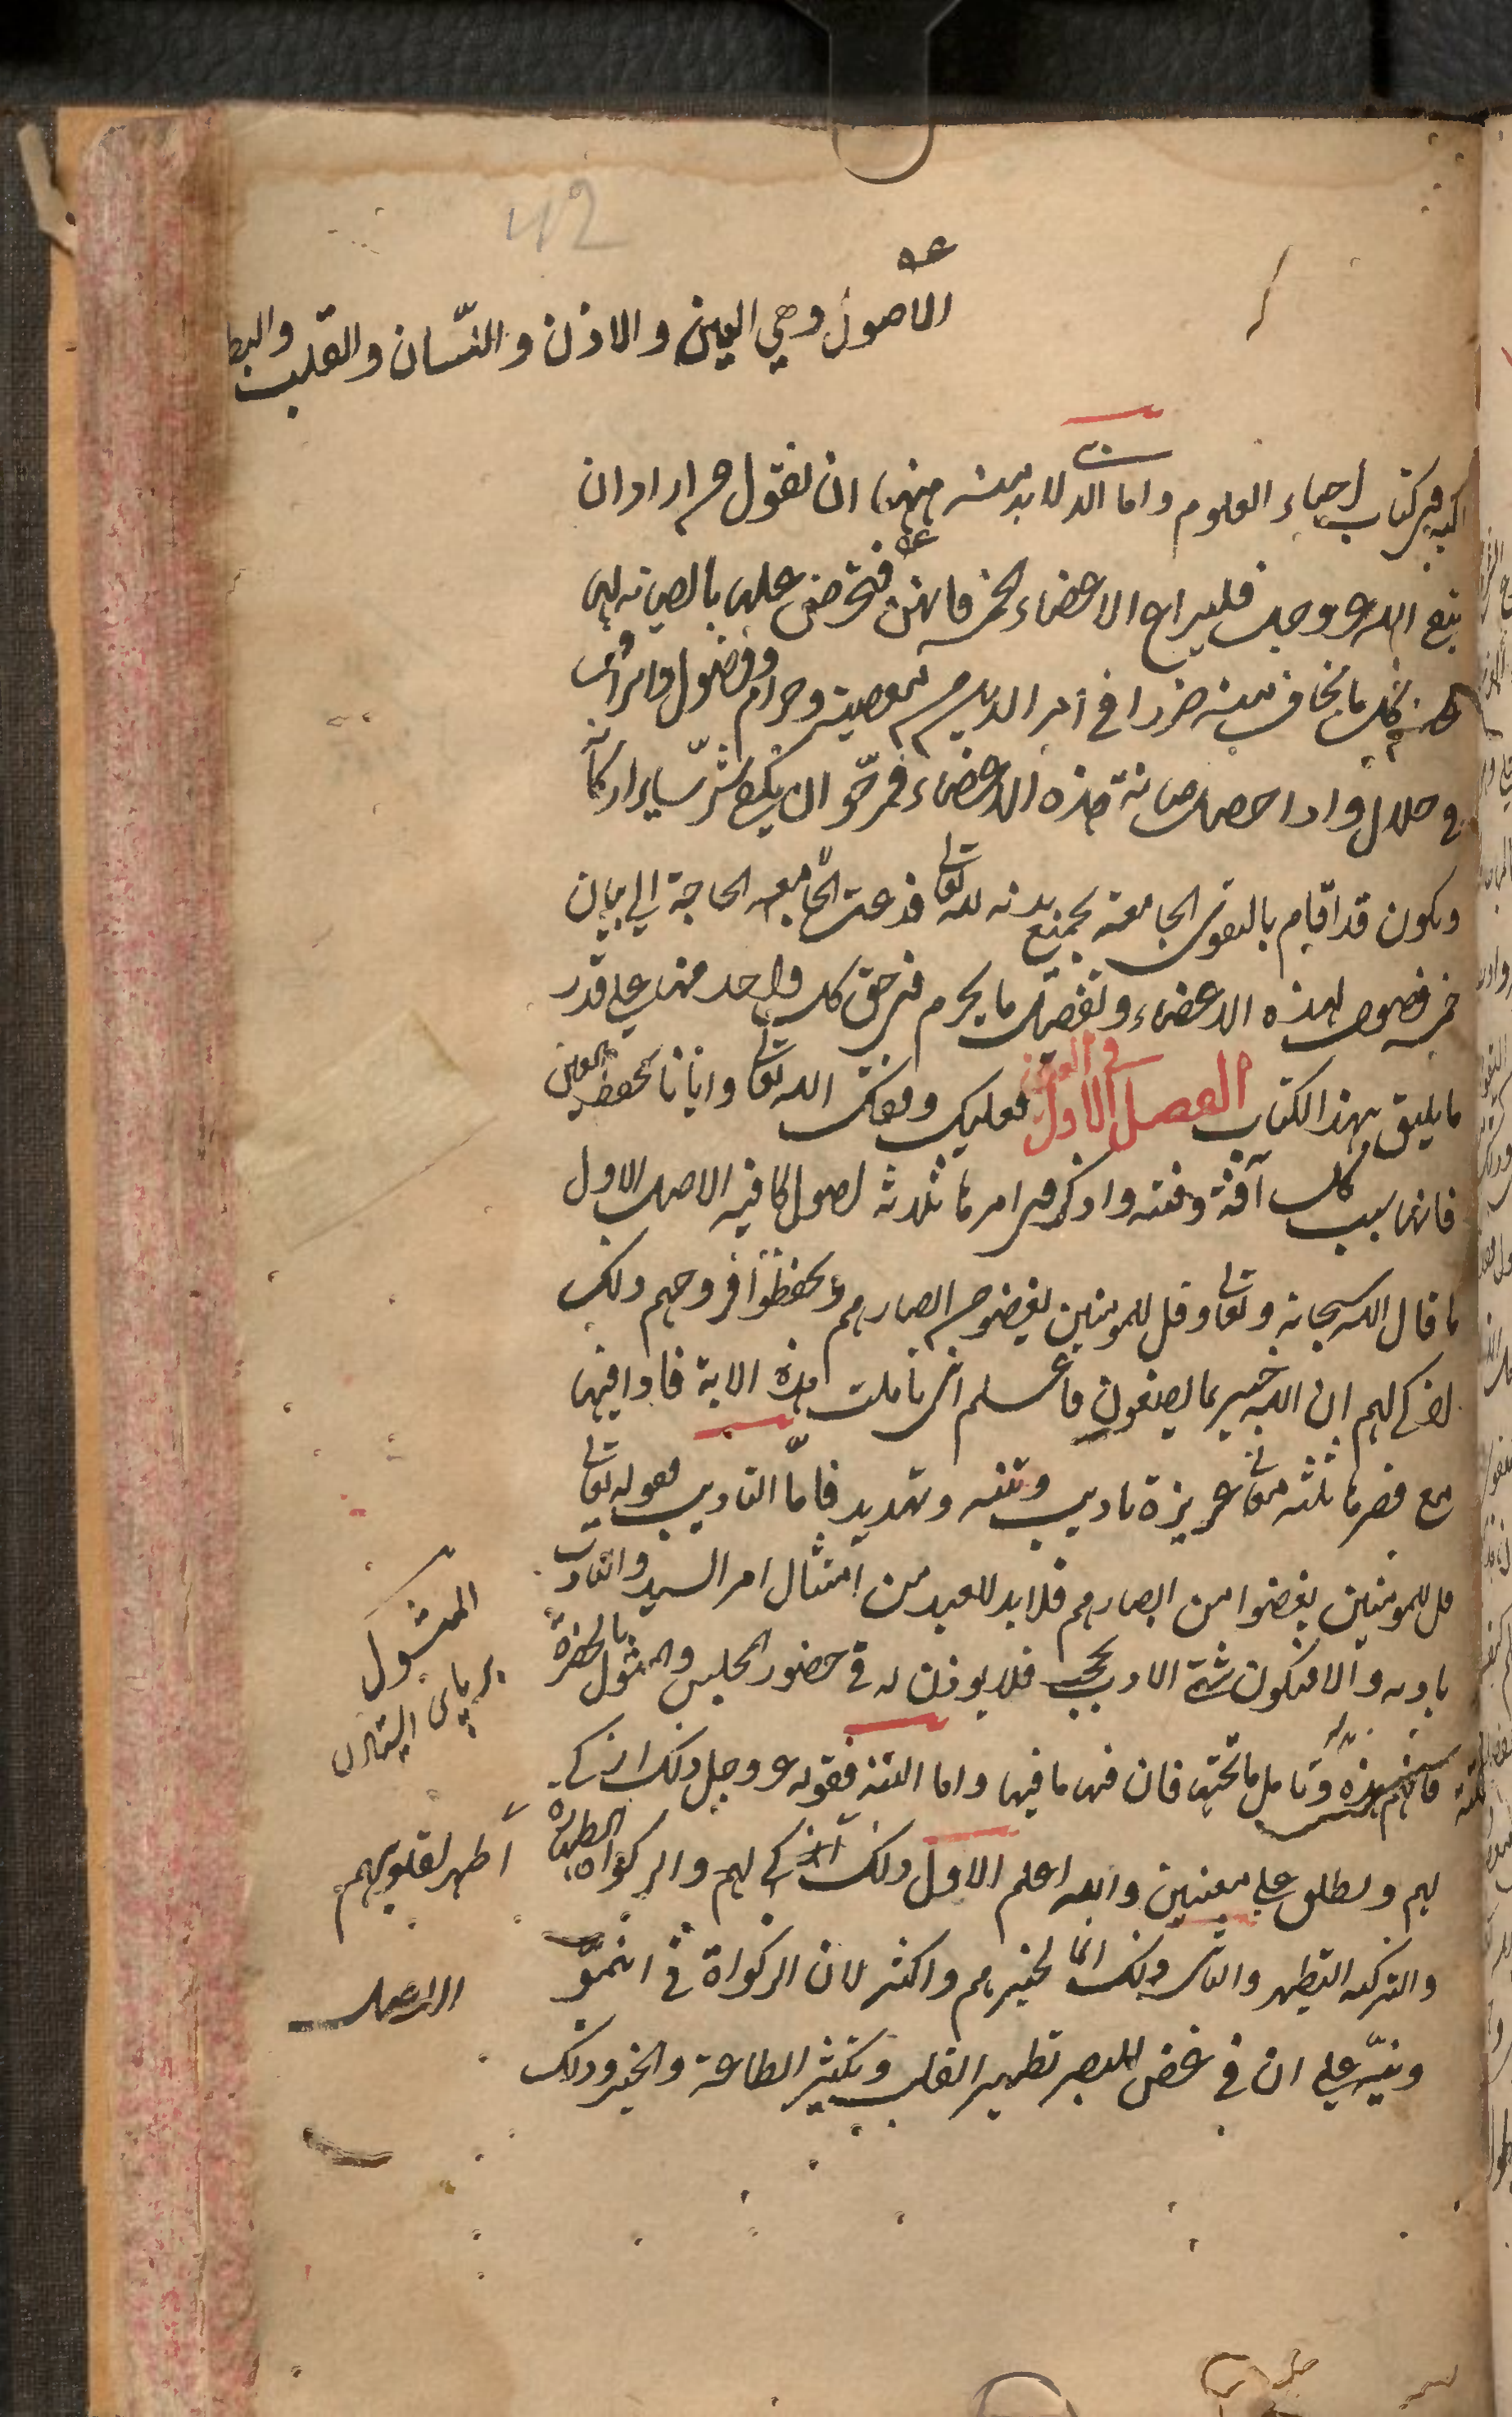 42
الاصول وهي العين والاذن واللسان والقلب والبطن
في كتاب احياء العلوم واما الذي لا بد منه منها ان نقول من اراد ان
يتقي الله عز وجل فليراع الاعضاء الخمس فانهن فتحرص عليها بالصيانة لها
عن كل ما يخاف منه ضررا في أمر الدين من معصية وحرام وفضول واسراف
في حلال واذا حصل صيانة هذه الاعضاء فمرجو ان يكفي شر سائر اركانه
ويكون قد اقام بالتقوى الجامعة بجميع بدنه لله تعالى فدعت الحاجة الى بيان
خمس فصول لهذه الاعضاء وتفصيل ما يحرم في حق كل واحد منها على قدر
ما يليق بهذا الكتاب الفصل الاول في العين فعليك وفقك الله تعالى وايانا بحفظ العين
فانها سبب كل آفة وفتنة واذكر في امرها ثلاثة اصول كافية الاصل الاول
ما قال الله سبحانه وتعالى وقل للمومنين يغضوا من ابصارهم ويحفظوا فروجهم ذلك
ازكى لهم ان الله خبير بما يصنعون واعلم اني تاملت هذه الاية فاذا فيها
مع قصرها ثلثة معاني عزيزة تاديب وتنبيه وتهديد فامّا التاديب فقوله تعالى
قل للمومنين يغضوا من ابصارهم فلا بد للعبد من امتثال امر السيد والتادب
بادبه والا فيكون سيئ الادب فيحجب فلا يوذن له في حضور المجلس والمثول بالحضرة
فافهم هذه وتامل ما تحته فان فيها ما فيها واما التنبيه فقوله عز وجل ذلك ازكى
لهم ويطلق على معنيين والله اعلم الاول ذلك ازكى لهم والزكواة الطهارة
والتزكية التطهير والثاني ذلك انما لخيرهم واكثر لان الزكواة في النموّ
ونبّه على ان في غض البصر تطهير القلب وتكثير الطاعة والخير وذلك
المثول
أطهر لقلوبهم